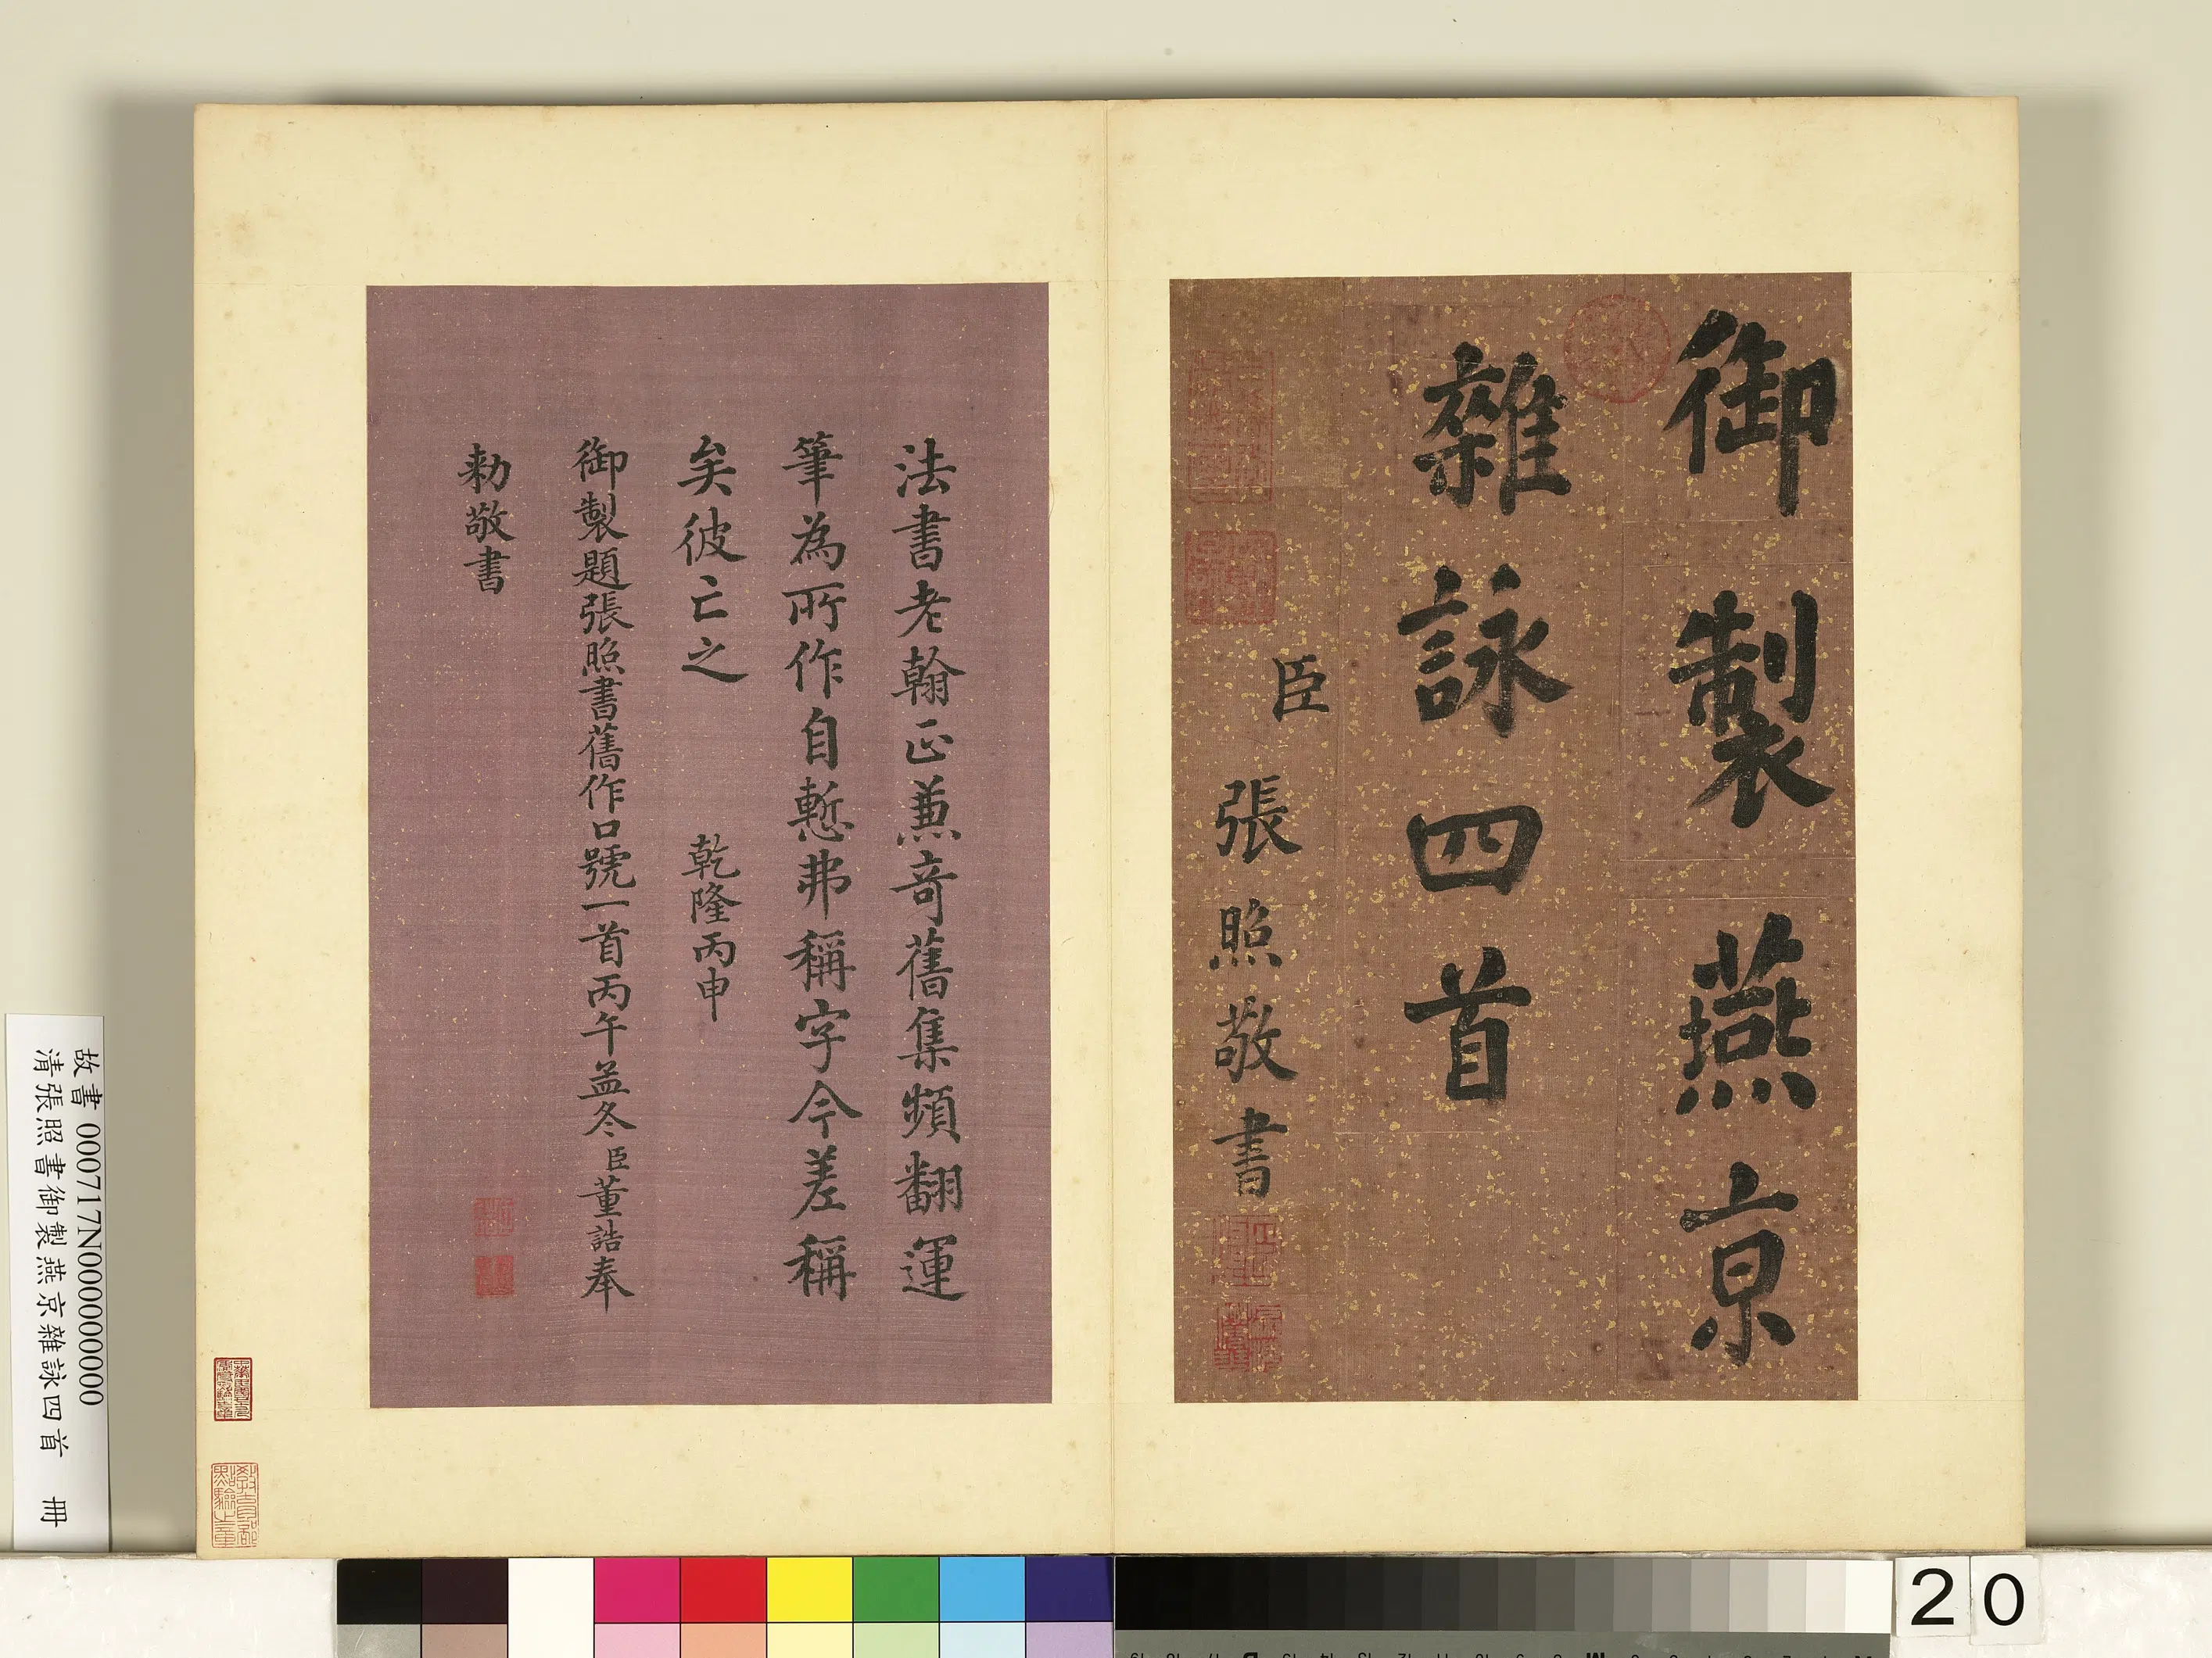 御製燕京
雜詠四首
臣
張照敬書
法書老翰正兼奇舊集頻翻運
筆為所作自慙弗稱字今差稱
矣彼亡之 乾隆丙申
御製題張照書舊作口號一首丙午孟冬臣董誥奉
勅敬書
故書 000717N000000000
清張照書御製燕京雜詠四首 冊
教育部點驗之章
20